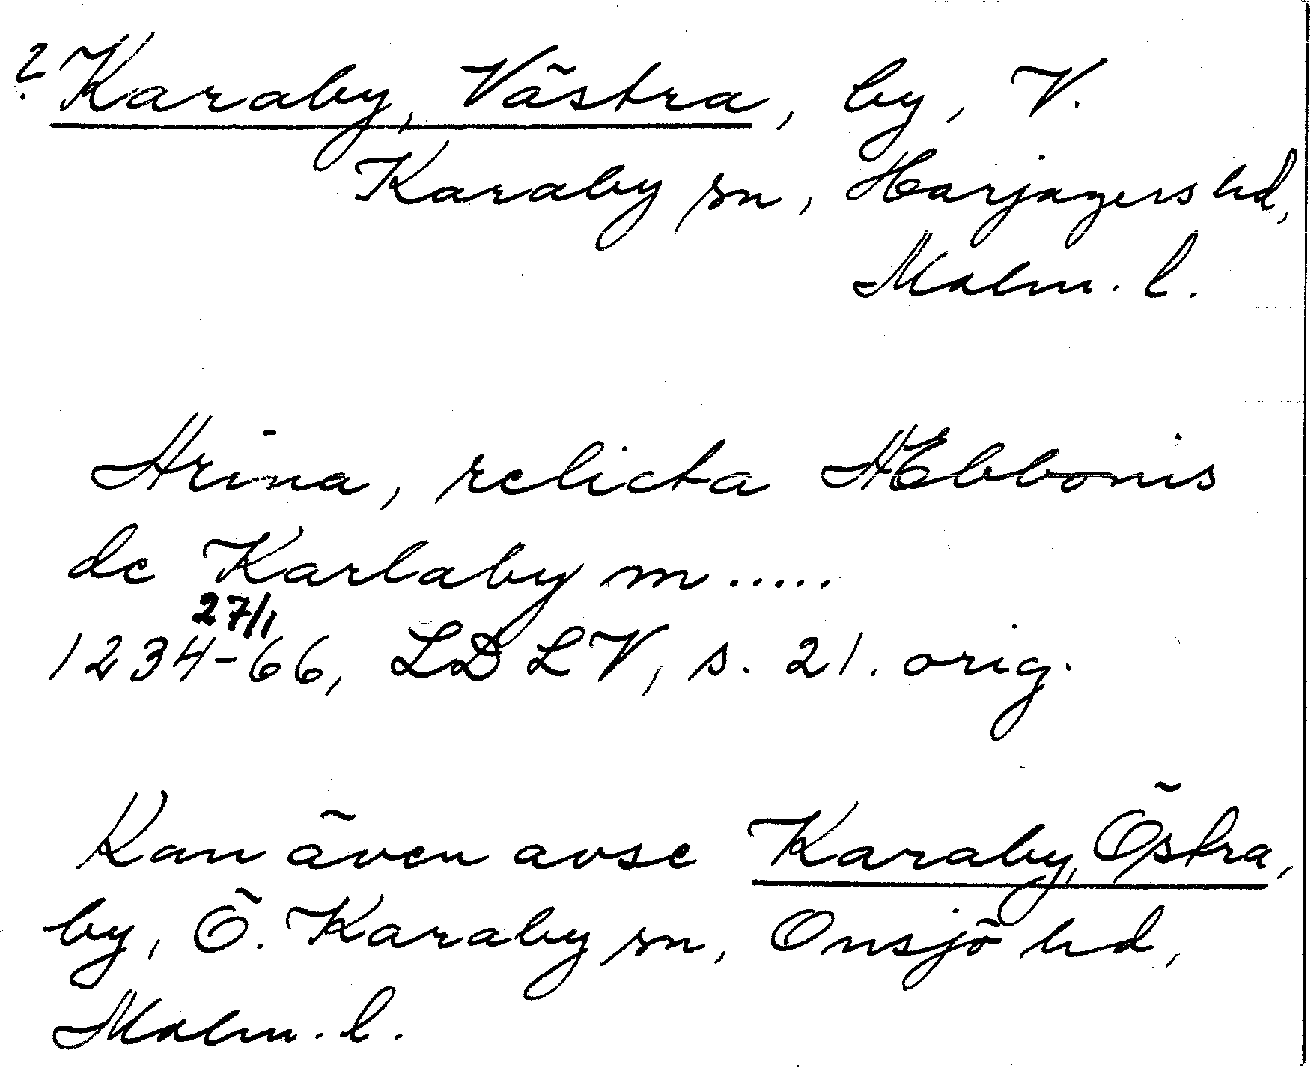 ? Karaby, Västra, by, V.
Karaby sn, Harjagers hd,
Malm. l.
Hrina, relicta Hebbonis
de Karlaby m .....
27/1
1234-66, LDLV, s. 21. orig.
Kan även avse Karaby, Östra,
by, Ö. Karaby sn, Onsjö hd,
Malm. l.